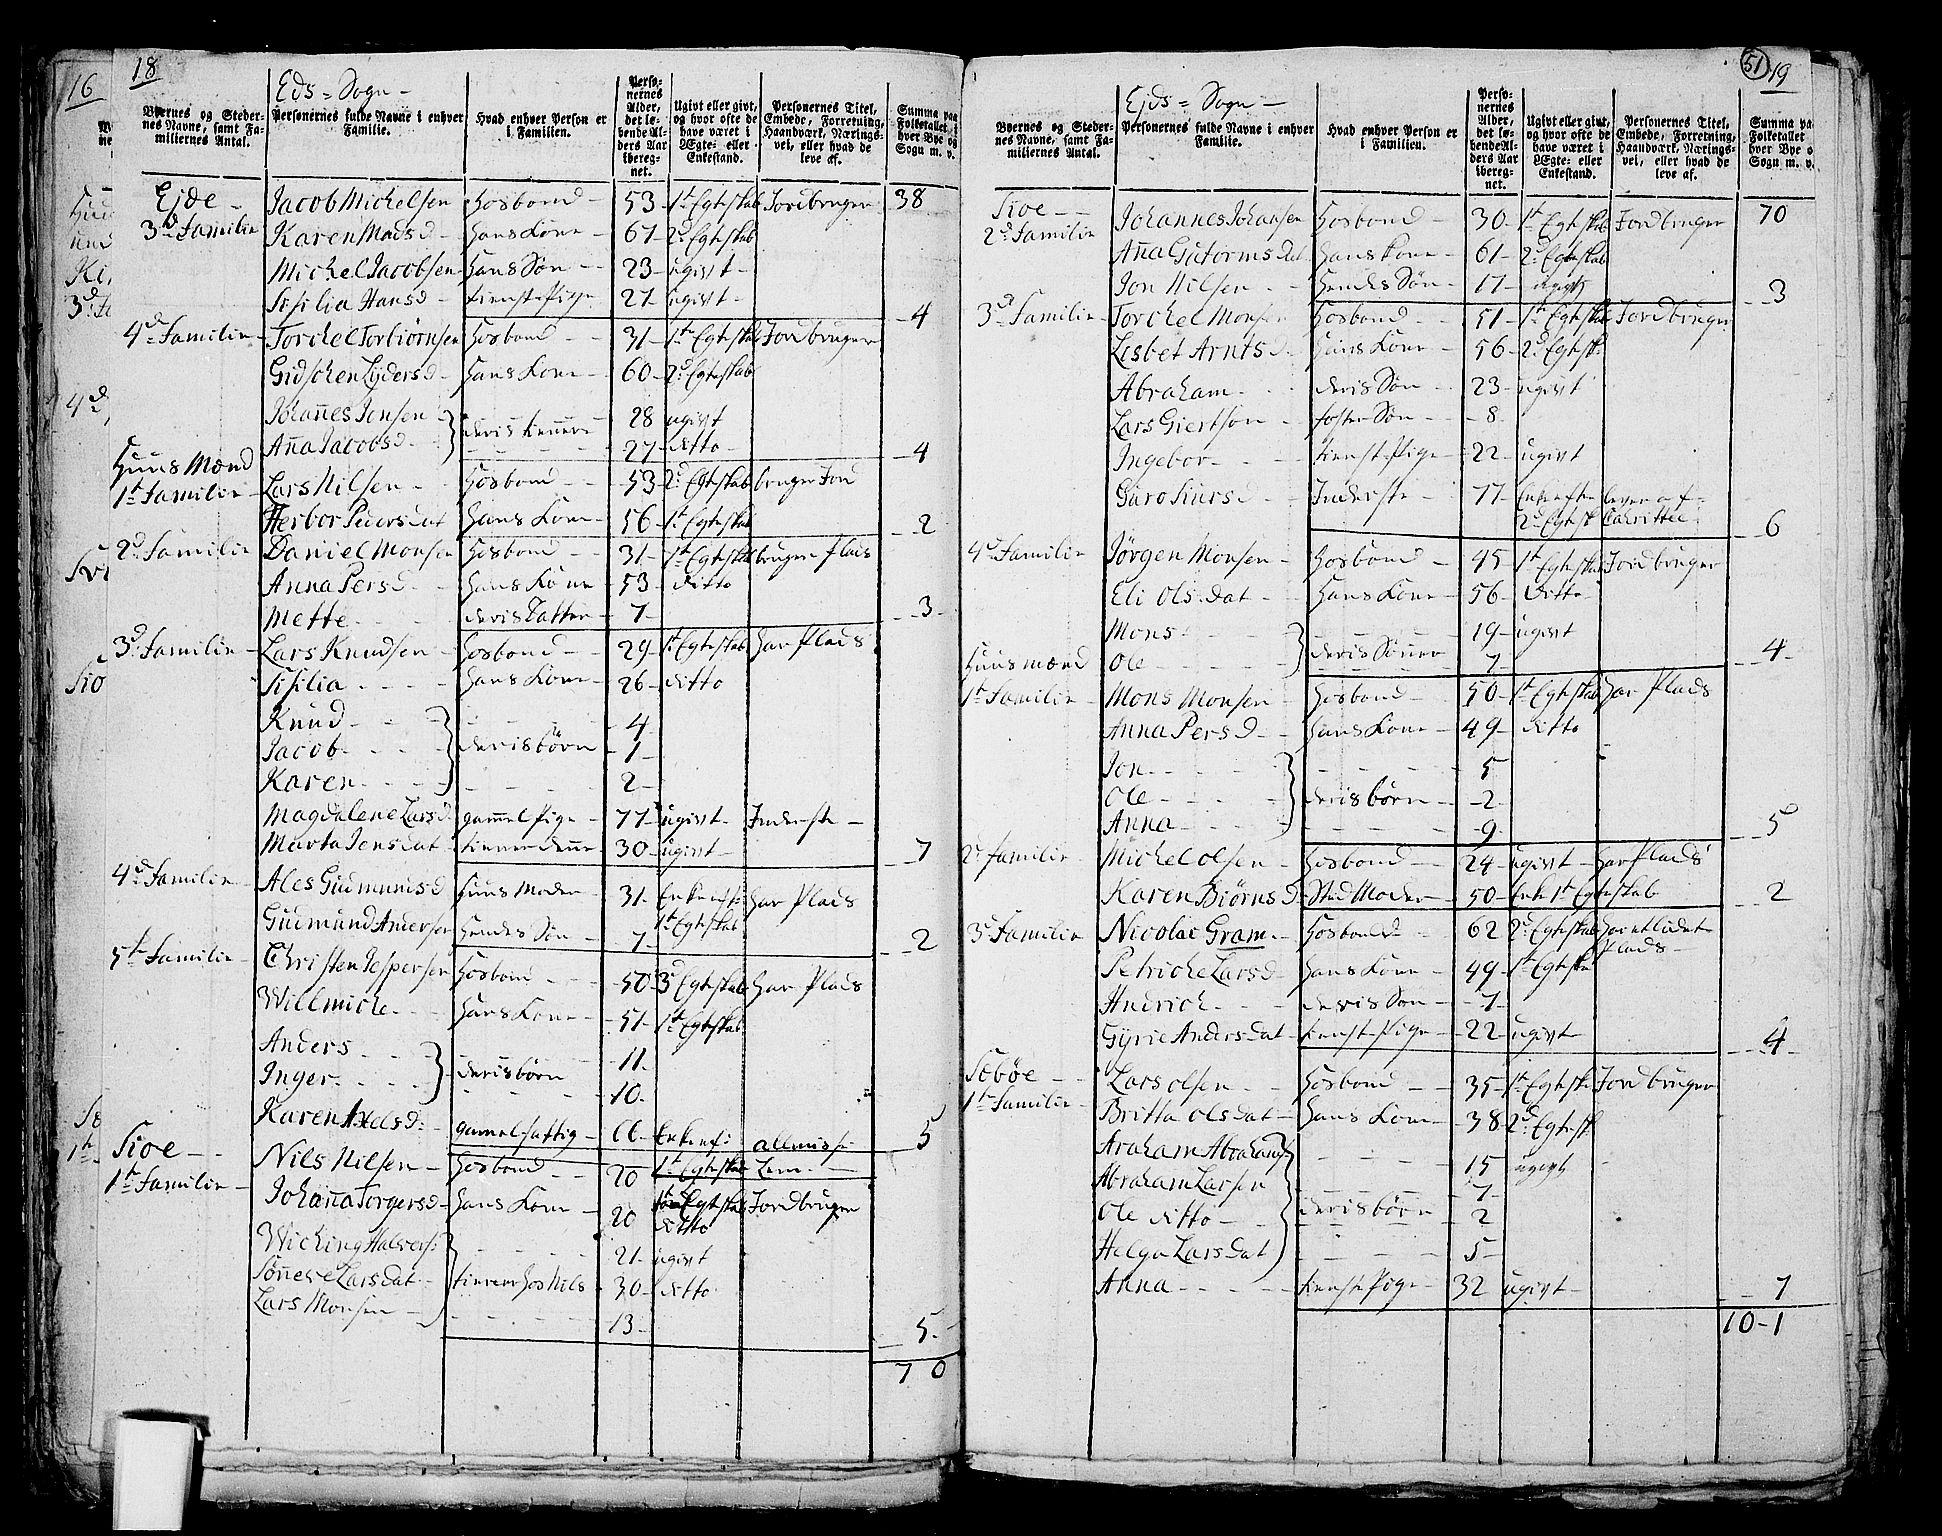 16
18
Eds = Sogn -
Byernes og Steder-
nes Navne, samt Fa-
miliernes Antal.
Personernes fulde Navne i enhver
Familie.
Hvad enhver Person er
i Familien.
Perso-
nernes
Alder,
det lø-
bende Al-
ders Aar
ibereg-
net.
Ugivt eller givt,
og hvor ofte de
have været i
Ægte- eller
Enkestand.
Personernes Titel,
Embede, Forretning,
Haandværk, Nærings-
vei, eller hvad de
leve af.
Summa paa
Folketallet i
hver Bye og
Sogn m. v.
Ejde - Jacob Michelsen Hosbond - 53 - 1t Egteskab Jordbruger 38
3d Familie Karen Madsd - Hans Kone - 67 - 2d Egteskab
Michel Jacobsen Hans Søn - 23 - ugivt -
Sisilia Hansd - tieneste Pige 27 ugivt - 4
4d Familie - Torchel Torbiørnsen Hosbond - 31 - 1t Egteskab Jordbruger
Gidschen Lydersd - Hans Kone - 60 - 2d Egteskab
Johannes Jonsen 28 ugivt
Anna Jacobsd - } deris tienere 27 - ditto - 4
Huus Mænd
1t Familie - Lars Nilsen - Hosbond - 53 2d Egteskab bruger Jord
Herbor Pedersdat Hans Kone - 56 - 1t Egteskab 2
2d Familie Daniel Monsen Hosbond - 31 - 1t Egteskab bruger Plads
Anna Persd - Hans Kone - 53 - ditto
Mette - deris Datter - 7 - 3 -
3d Familie - Lars Knudsen - Hosbond - 29 - 1t Egteskab Har Plads
Sisilia - Hans Kone - 26 - ditto
Knud - 4
Jacob - } deris børn - 1 -
Karen - 2 -
Magdalene Larsd gammel Pige - 77 ugivt - Inderste -
Marta Jensdat - tiener 30 - ugivt - 7
4d Familie - Ales Gudmunsd Huus Moder - 31 - Enke efter Har Plads
1t Egteskab
Gudmund Andersen Hendes Søn - 7 - 2
5te Familie - Christen Jespersen Hosbond - 50 3d Egteskab Har Plads
Willmiche - Hans Kone - 51 - 1t Egteskab
Anders - 11 -
Inger - } deris børn 10 -
Karen Axelsd: gamel fattig - 66 - Enke ef: allmisse 5
Sioe - - Nils Nilsen - Hosbond - 20 1t Egteskab Lem -
1t Familie - Johanna Torgersd - Hans Kone - 20 ditto Jordbruger
Wiching Halvers: 21 - ugivt
Sønneve Larsdat - } tienere hos Nils - 30 - ditto
Lars Monsen - 13 - 5 -
7 0
51
19
Ejds = Sogn -
Byernes og Steder-
nes Navne, samt Fa-
miliernes Antal.
Personernes fulde Navne i enhver
Familie.
Hvad enhver Person er
i Familien.
Perso-
nernes
Alder,
det lø-
bende Al-
ders Aar
ibereg-
net.
Ugivt eller givt,
og hvor ofte de
have været i
Ægte- eller
Enkestand.
Personernes Titel,
Embede, Forretning,
Haandværk, Nærings-
vei, eller hvad de
leve af.
Summa pa
Folketallet
hver Bye o
Sogn m. v.
Sioe - - Johannes Johansen Hosbond - 30 - 1t Egteskab Jordbruger 70
2d Familie Anna Gutormsdat Hans Kone - 61 - 2d Egteskab
Jon Nilsen - Hendes Søn - 17 - ugivt 3
3d Familie - Torchel Monsen Hosbond - 51 - 1t Egteskab Jordbruger
Lisbet Arntsd - Hans Kone - 56 - 2d Egtesk:
Abraham - deris Søn - 23 - ugivt
Lars Giertson - foster Søn - 8 -
Ingebor - tieneste Pige - 22 - ugivt
Guro Siursd - Inderste - 77 - Enke efter lever af
2d Egtesk 6
4d Familie Jørgen Monsen - Hosbond - 45 1t Egteskab Jordbruger
Eli Olsdat - Hans Kone - 56 - ditto
Mons - 19 - ugivt
Huusmænd Ole - } deris Sønner - 7 - 4 -
1t Familie - Mons Monsen - Hosbond - 50 - 1t Egteskab Har Plads
Anna Persd - Hans Kone - 49 - ditto
Jon - 5
Ole - } deris børn - 2 -
Anna - 9 - 5
2d familie Michel Olsen - Hosbond - 24 - ugivt - Har Plads
Karen Biørnsd - Sted Moder - 50 - Enke 1t Egteskab 2
3d Familie Nicolai Gram - Hosbond - 62 2d Egteskab Har et lidet
Plads -
Petriche Larsd - Hans Kone - 49 - 1t Egteskab
Hndrich - deris Søn - 7 -
Gyrie Andersdat - tieneste Pige - 22 - ugivt - 4 -
Sæbøe - - Lars Olsen - Hosbond - 35 - 1t Egtesk: Jordbruger
1t Familie - Britta Olsdat - Hans Kone - 38 - 2d Egtesk
Araham Abrahams 15 ugivt
Abraham Larsen 7 -
Ole ditto - } deris børn 2
Helga Larsdat 5 -
Anna - - - tieneste Pige - 32 ugivt - 7
10 - 1